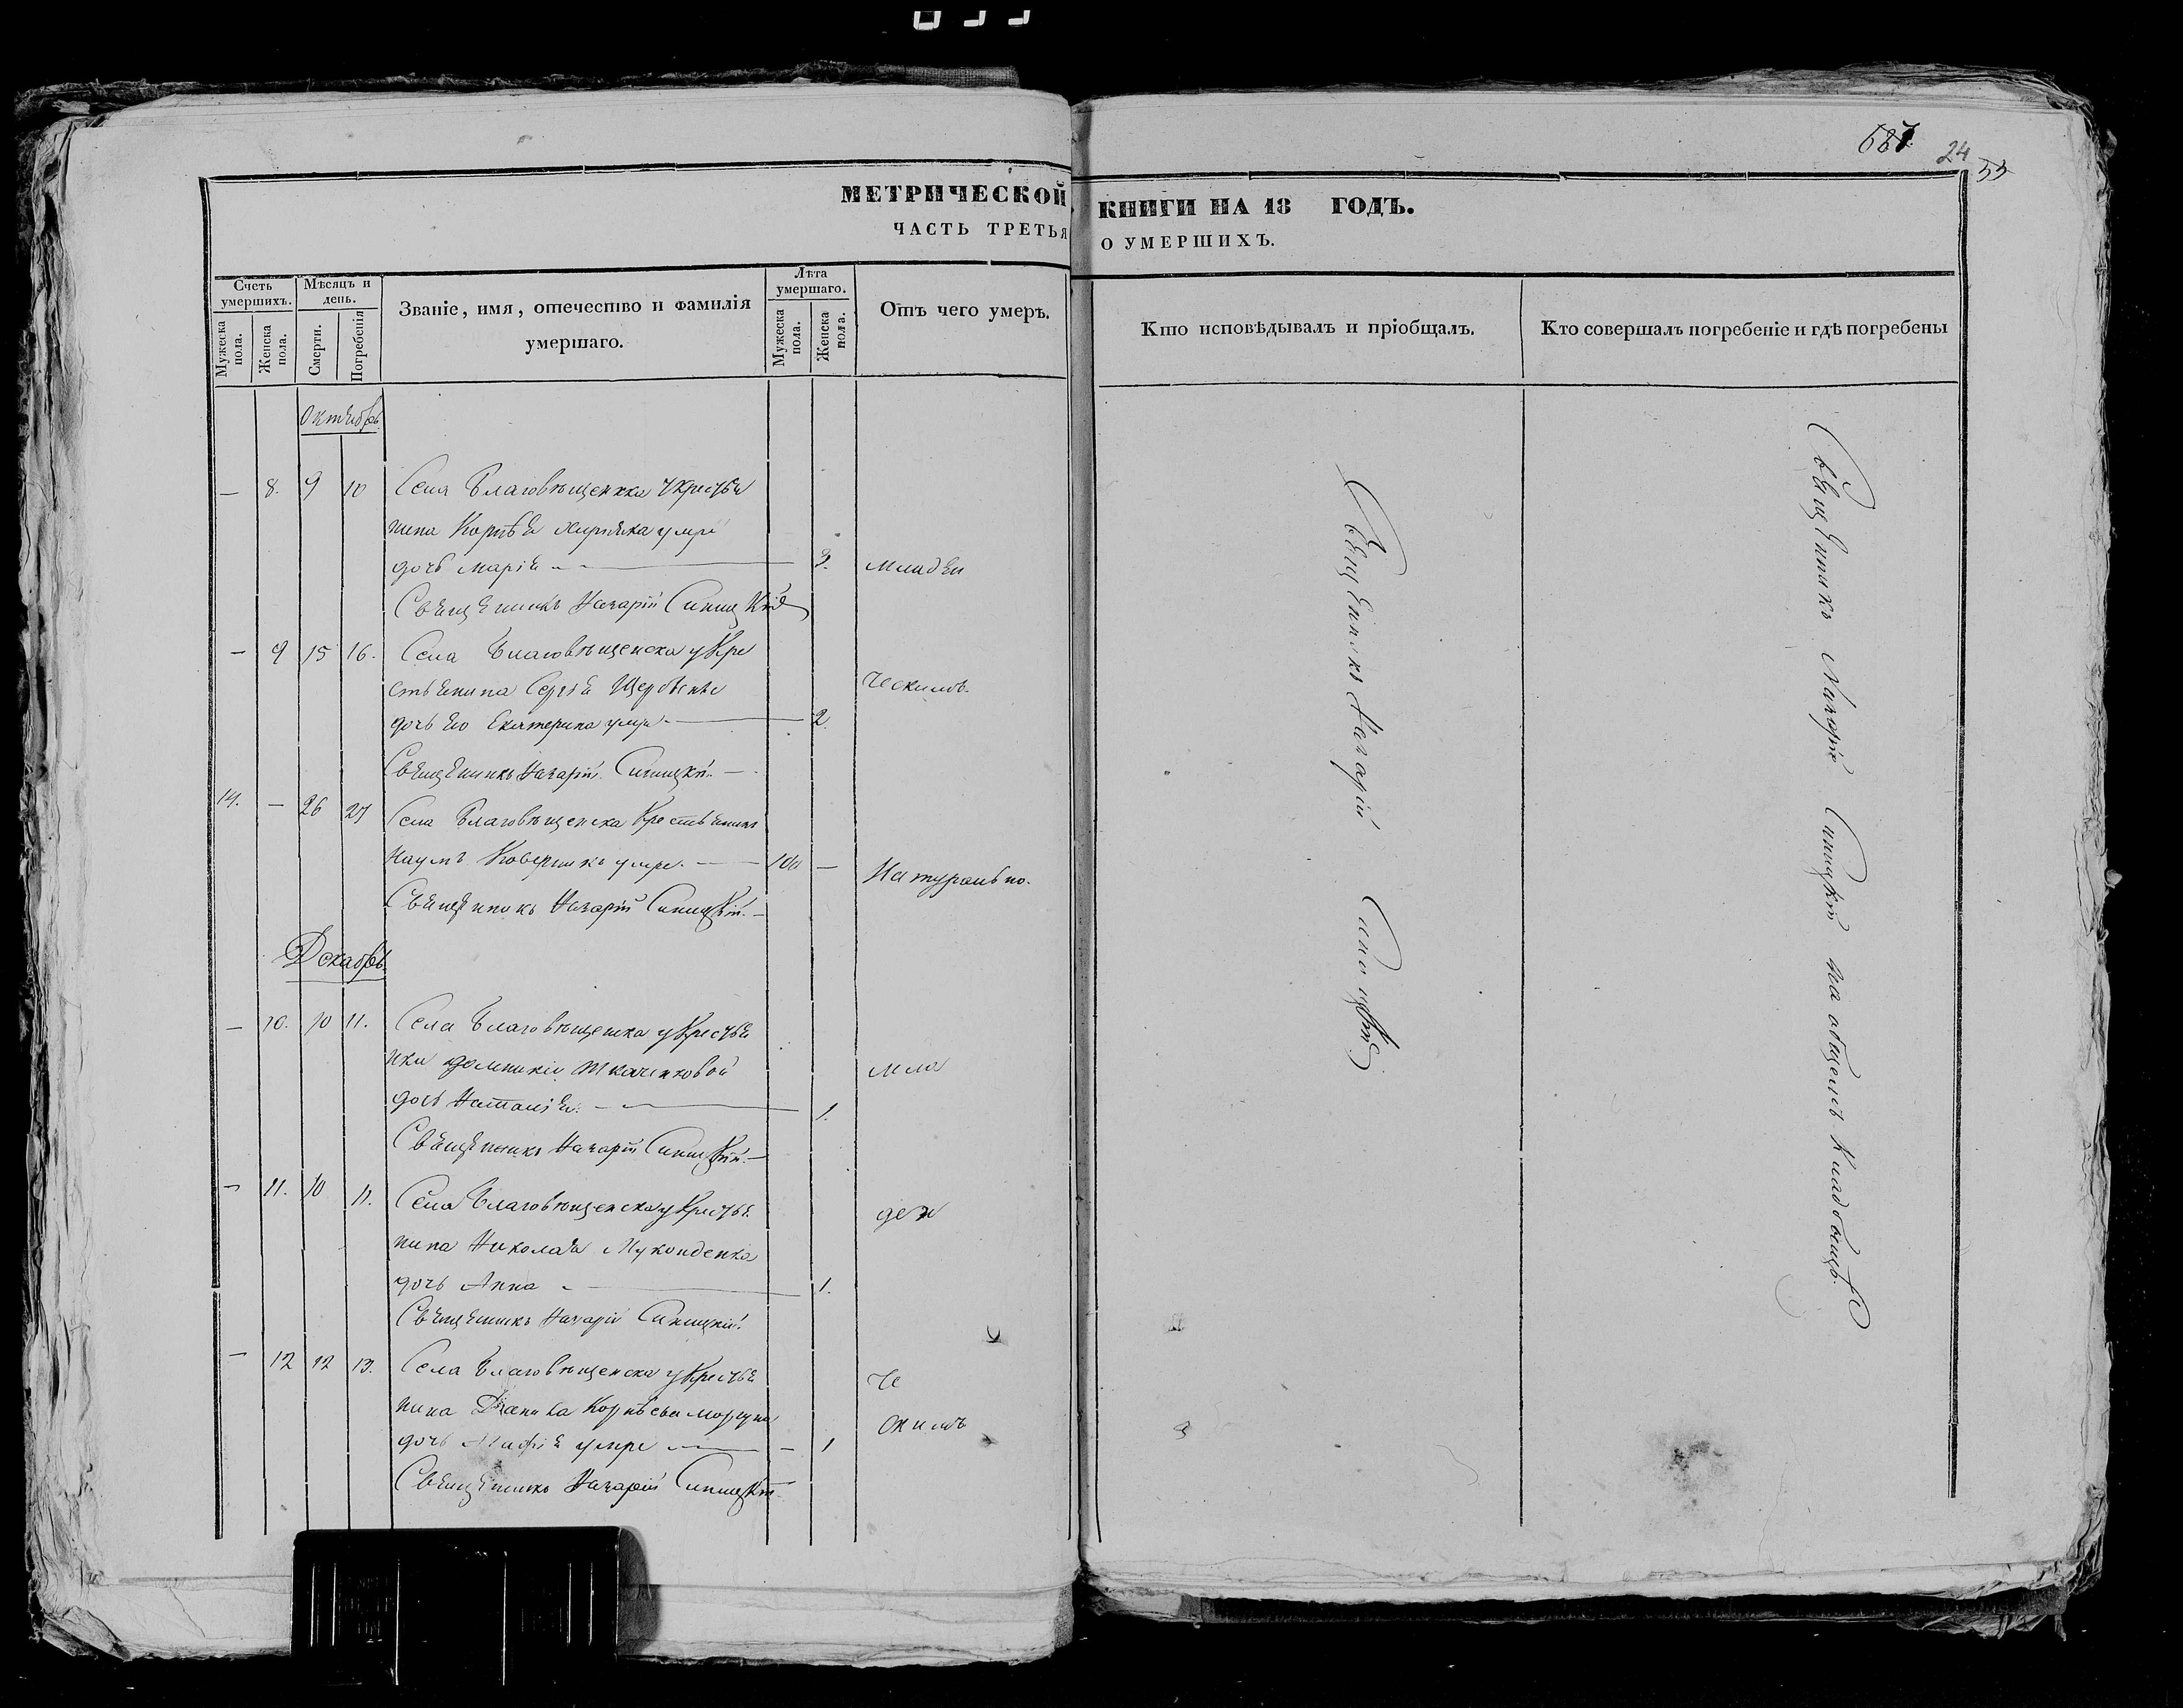 687 24
33
МЕТРИЧЕСКОЙ КНИГИ НА 18 ГОДЪ.
ЧАСТЬ ТРЕТЬЯ О УМЕРШИХЪ.
Счетъ умершихъ.
Мужеска пола.
Женска пола.
Мѣсяцъ и день.
Смерти.
Погребенія
Званіе, имя, отечество и фамилія умершаго.
Лѣта умершаго.
Мужеска пола.
Женска пола.
Отъ чего умеръ.
Кто исповѣдывалъ и пріобщалъ.
Кто совершалъ погребеніе и гдѣ погребены
Октябрь
— 8. 9 10 Села Благовѣщенска у крестья
нина умре
дочь Марія — 3. младен
Священникъ Назарій Синицкій
— 9 15 16. Села Благовѣщенска у кре
стьянина Сергѣя
дочь его Екатерина умре — 2.
Священникъ Назарій Синицкій —
14. — 26 27 Села Благовѣщенска крестьянинъ
Наумъ умре. — 100 — Натурально.
Священникъ Назарій Синицкій. —
Декабрь
— 10. 10 11. Села Благовѣщенска у крестья
нки мла
дочь Наталія. — 1.
Священникъ Назарій Синицкій. —
— 11. 10 11. Села Благовѣщенска у крестья
нина Николая ден
дочь Анна — 1.
Священникъ Назарій Синицкій.
— 12 12 13. Села Благовѣщенска у крестья
нина
дочь умре — — 1
Священникъ Назарій Синицкій
Священникъ Назарій Синицкій
Священникъ Назарій Синицкій на общемъ кладбищѣ.